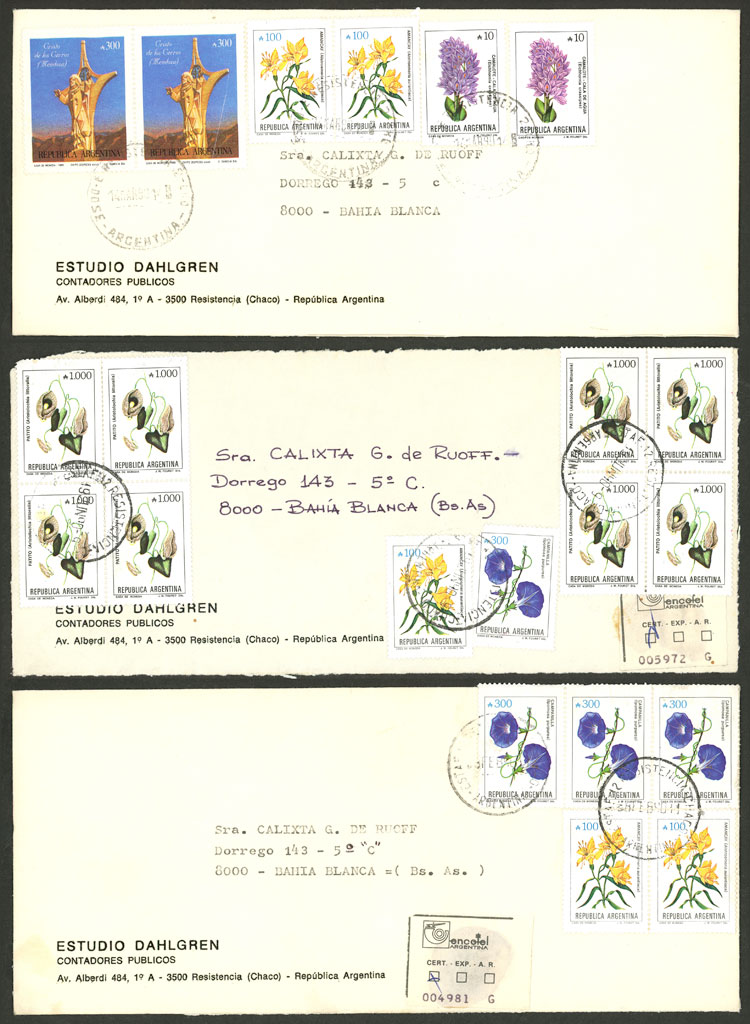 Cristo
de los Cerros
(Mendoza)
₳300
REPUBLICA ARGENTINA
Cristo
de los Cerros
(Mendoza)
₳300
REPUBLICA ARGENTINA
₳100
AMANCAY
REPUBLICA ARGENTINA
₳100
AMANCAY
REPUBLICA ARGENTINA
₳10
REPUBLICA ARGENTINA
₳10
REPUBLICA ARGENTINA
ARGENTINA
Sra. CALIXTA G. DE RUOFF
DORREGO 143 - 5 c
8000 - BAHIA BLANCA
ESTUDIO DAHLGREN
CONTADORES PUBLICOS
Av. Alberdi 484, 1º A - 3500 Resistencia (Chaco) - República Argentina
₳1.000
PATITO (Aristolochia littoralis)
REPUBLICA ARGENTINA
₳1.000
PATITO (Aristolochia littoralis)
REPUBLICA ARGENTINA
₳1.000
PATITO (Aristolochia littoralis)
REPUBLICA ARGENTINA
₳1.000
PATITO (Aristolochia littoralis)
REPUBLICA ARGENTINA
₳1.000
PATITO (Aristolochia littoralis)
REPUBLICA ARGENTINA
₳1.000
PATITO (Aristolochia littoralis)
REPUBLICA ARGENTINA
₳1.000
PATITO (Aristolochia littoralis)
REPUBLICA ARGENTINA
₳1.000
PATITO (Aristolochia littoralis)
REPUBLICA ARGENTINA
Sra. CALIXTA G. de RUOFF.-
Dorrego 143 - 5º C.
8000 - BAHÍA BLANCA (Bs.As)
₳100
REPUBLICA ARGENTINA
₳300
CAMPANILLA
REPUBLICA ARGENTINA
ESTUDIO DAHLGREN
CONTADORES PUBLICOS
Av. Alberdi 484, 1º A - 3500 Resistencia (Chaco) - República Argentina
encotel
ARGENTINA
CERT. - EXP. - A. R.
005972 G.
₳300
CAMPANILLA
REPUBLICA ARGENTINA
₳300
CAMPANILLA
REPUBLICA ARGENTINA
₳300
CAMPANILLA
REPUBLICA ARGENTINA
₳100
AMANCAY
REPUBLICA ARGENTINA
₳100
AMANCAY
REPUBLICA ARGENTINA
Sra. CALIXTA G. DE RUOFF
Dorrego 143 - 5º "C"
8000 - BAHIA BLANCA =( Bs. As. )
ESTUDIO DAHLGREN
CONTADORES PUBLICOS
Av. Alberdi 484, 1º A - 3500 Resistencia (Chaco) - República Argentina
encotel
ARGENTINA
CERT. - EXP. - A. R.
004981 G